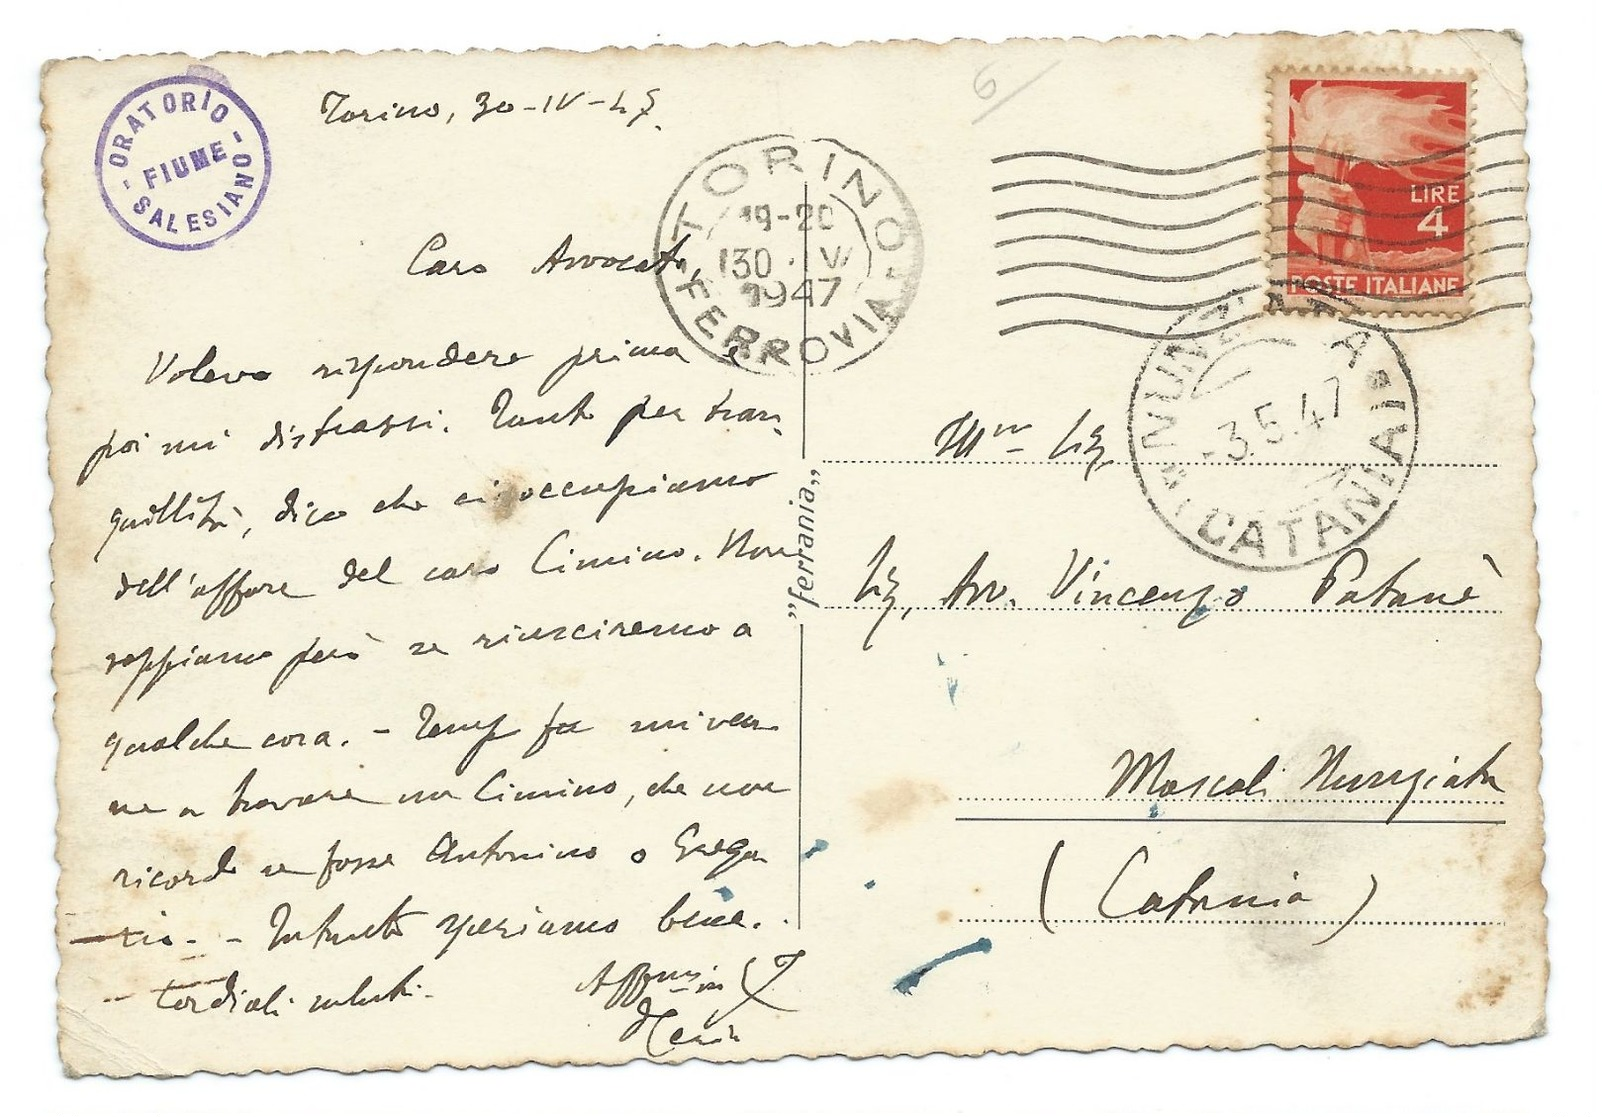 ORATORIO
FIUME
SALESIANO
Torino, 30-IV-47.
TORINO
19-20
30 . IV
1947
FERROVIA
LIRE
4
POSTE ITALIANE
Caro Avvocato,
Volevo rispondere prima e
poi mi distrassi. Tanto per tran
quillità, dico che ci occupiamo
dell'affare del caro Cimino. Non
sappiamo però se riusciremo a
qualche cosa. - Temp fa mi ven
ne a trovare un Cimino, che non
ricordo se fosse Antonino o Grega
rio. - Intanto speriamo bene.
Cordiali saluti.
Affmo in
"ferrania"
NUNZIATA
-3.5.47
(CATANIA)
Avv. Vincenzo Patanè
Mascali Nunziata
(Catania)
6/